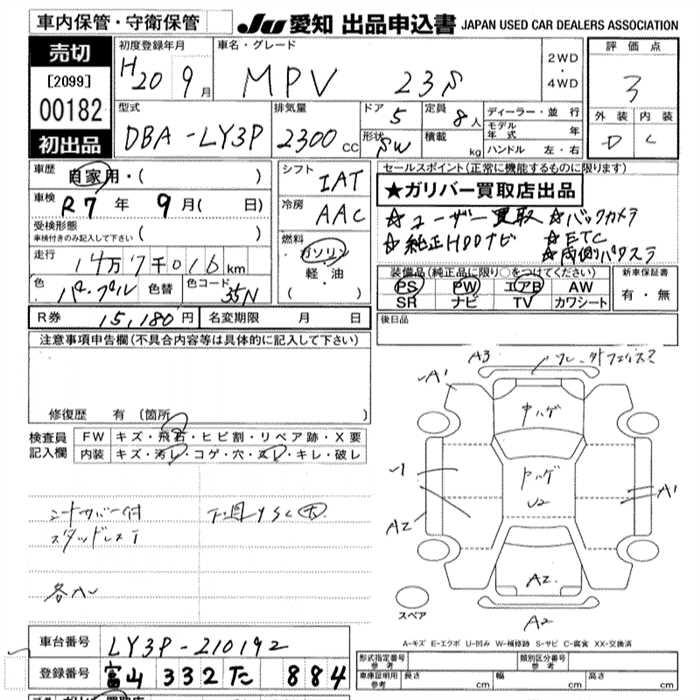 車内保管・守衛保管
JU 愛知 出品申込書 JAPAN USED CAR DEALERS ASSOCIATION
売切
[2099]
00182
初出品
初度登録年月 H20 9月
車名・グレード MPV 23S
2WD ・ 4WD
評価点 3
外装 内装
D C
型式 DBA-LY3P
排気量 2300cc
ドア 5
定員 8人
形状 SW
積載 kg
ディーラー・並行
モデル年式 年
ハンドル 左・右
車歴 自家用・( )
車検 R7年 9月( 日)
受検形態
車検付きのみ記入して下さい ( )
走行 14万7千016km
色 パープル 色替 色コード 35N
シフト IAT
冷房 AAC
燃料 ガソリン
軽・油
( )
セールスポイント(正常に機能するものに限ります)
★ガリバー買取店出品
☆ユーザー買取 ☆バックカメラ
☆純正HDDナビ ☆ETC
☆両側パワスラ
装備品(純正品に限り○をつけてください)
PS PW エアB AW
SR ナビ TV カワシート
新車保証書
有・無
R券 15,180円 名変期限 月 日
後日品
注意事項申告欄(不具合内容等は具体的に記入して下さい)
修復歴 有 (箇所 )
検査員記入欄
FW キズ・飛石・ヒビ割・リペア跡・X要
内装 キズ・汚レ・コゲ・穴・ヌレ・キレ・破レ
シートカバー付
スタッドレスT
下回りSC
各A
A3
A1
ヤハゲ
ヤハゲ
U2
A1
A2
A2
A2
スペア
A-キズ E-エクボ U-凹み W-補修跡 S-サビ C-腐食 XX-交換済
車台番号 LY3P-210192
登録番号 富山 332 た 884
形式指定番号 参考
類別区分番号 参考
車庫証明用 参考 長さ cm 幅 cm 高さ cm